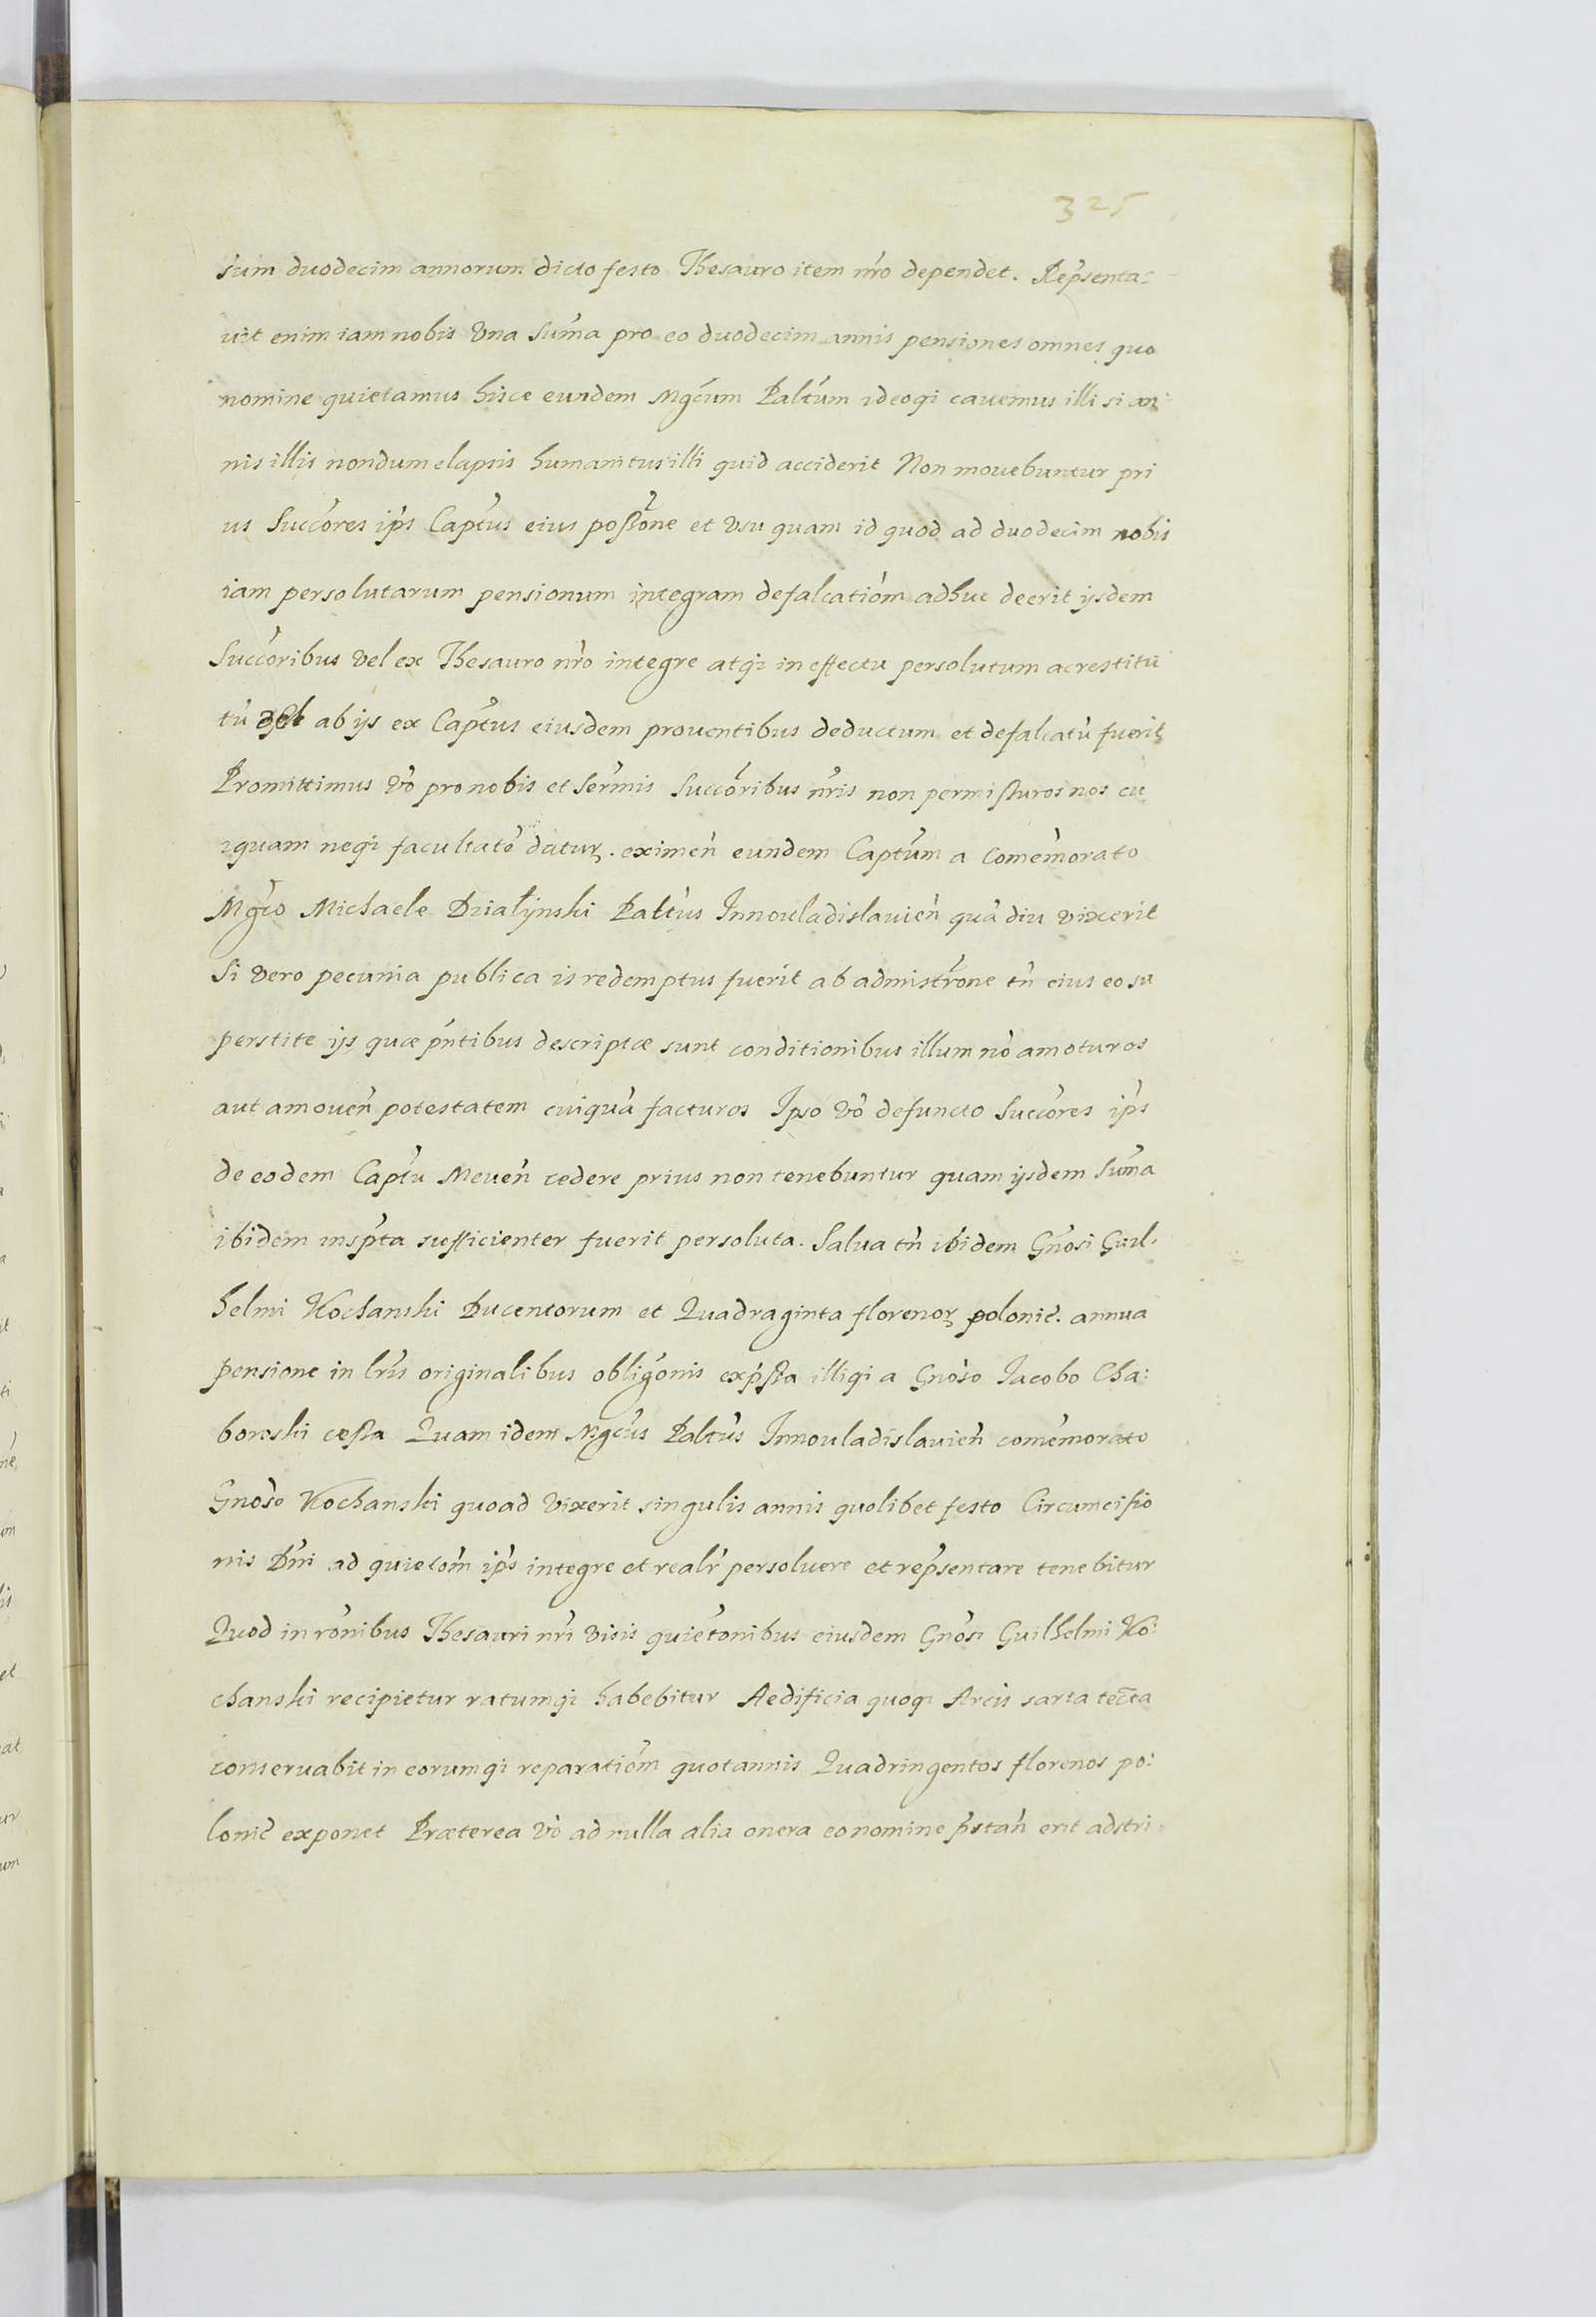 325
sum duodecim annorum dicto festo Thesauro item nr̃o dependet. Rep̃senta-
uit enim iam nobis Vna Sum̃a pro eo duodecim annis pensiones omnes quo
nomine quietamus hisce eundem Mgc̃um Paltũm ideoqȝ cauemus illi si an-
nis illis nondum elapsis humanitus illi quid acciderit Non mouebuntur pri
us Succõres ip̃s Capt̃us eius poss̃one et Vsu quam id quod ad duodecim nobis
iam persolutarum pensionum integram defalcatiõm adhuc deerit ijsdem
Succõribus Vel ex Thesauro nr̃o integre atqȝ in effectu persolutum ac restitu
tũ Vel ab ijs ex Capt̃us eiusdem prouentibus deductum et defalcatũ fuerit
Promittimus Võ pro nobis et Serm̃is Succõribus nr̃is non permissuros nos cu
iquam neqȝ facultatẽ daturꝝ. eximeñ eundem Captũm a Comem̃orato
Mgc̃o Michaele Dzialijnski Palt̃us Innouladislauieñ quã diu vixerit
Si Vero pecunia publica is redemptus fuerit ab admistr̃one tñ eius eo su
perstite ijs quæ pñtibus descriptæ sunt conditionibus illum nõ amoturos
aut amoueñ potestatem cuiquã facturos Ipso Võ defuncto Succõres ip̃s
de eodem Capt̃u Meueñ cedere prius non tenebuntur quam ijsdem Sum̃a
ibidem insp̃ta sufficienter fuerit persoluta. Salua tñ ibidem Gñosi Guil-
helmi Kochanski Ducentorum et Quadraginta florenoꝝ polonic̃. annua
pensione in lr̃is originalibus oblig̃onis exp̃ssa illiqȝ a Gnõso Iacobo Cha-
borski cessa Quam idem Mgc̃us Palt̃us Innouladislauieñ comem̃orato
Gnõso Kochanski quoad Vixerit singulis annis quolibet festo Circumcisio
nis Dñi ad quietõm ip̃s integre et realr̃ persoluere et rep̃sentare tenebitur
Quod in rõnibus Thesauri nr̃i Visis quietõnibus eiusdem Gnõsi Guilhelmi Ko-
chanski recipietur ratumqȝ habebitur Aedificia quoqȝ Arcis sarta tecta
conseruabit in eorumqȝ reparatiõm quotannis Quadringentos florenos po-
lonic̃ exponet Præterea Võ ad nulla alia onera eo nomine p̃stañ erit adstri-